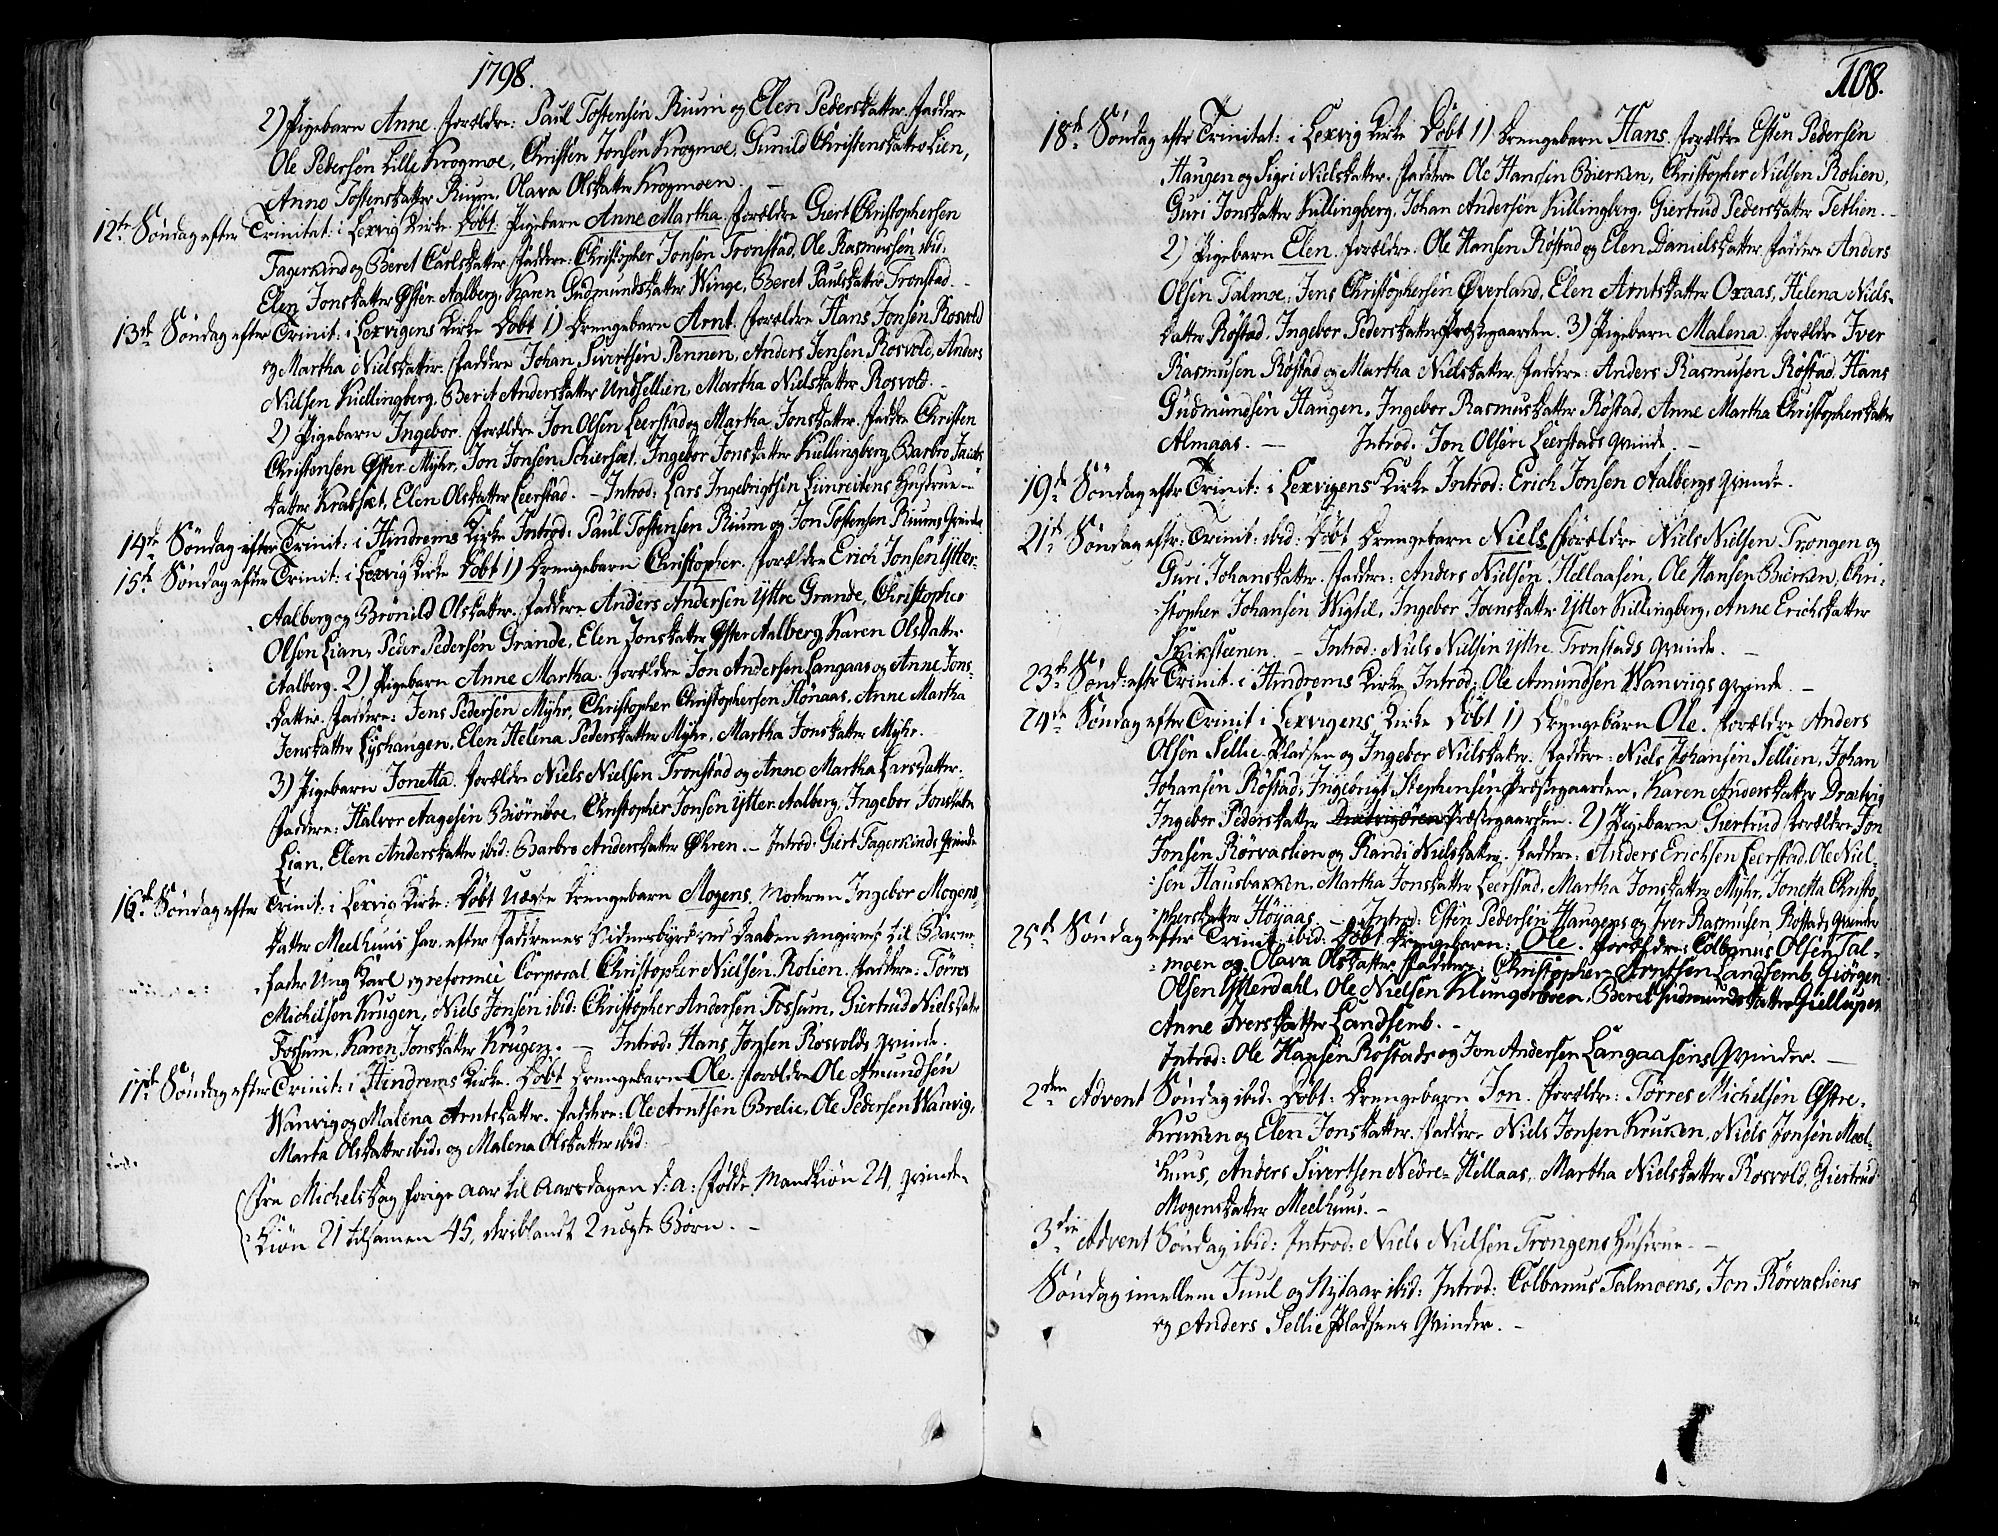 1798.
2) Pigebarn Anne. Forældre: Paul Tostensen Rium og Elen Pedersdatter. Faddere
Ole Pedersen Lille Krogmoe, Christen Jonsen Krogmoe, Gunild Christensdatter Lien,
Anne Tostensdatter Rium, Olava Olsdatter Krogmoen. –
12te Søndag efter Trinitat: i Lexvig Kirke. Døbt Pigebarn Anne Martha. Forældre Giert Christophersen
Fagerkind og Beret Carlsdatter. Faddere: Christopher Jonsen Tronstad, Ole Rasmussen ibid.
Elen Jonsdatter Øster Aalberg, Karen Gudmundsdatter Winge, Beret Paulsdatter Tronstad. –
13de Søndag efter Trinit: i Lexvigens Kirke Døbt 1) Drengebarn Arnt. Forældre Hans Jonsen Rosvold
og Martha Nielsdatter. Faddere Johan Sivertsen Pennen, Anders Jensen Rosvold, Anders
Nielsen Kiellingberg, Berit Andersdatter Undsellien, Martha Nielsdatter Rosvold. –
2) Pigebarn Ingebor. Forældre Jon Olsen Leerstad og Martha Jonsdatter. Faddere Christen
Christensen Øster Myhr, Jon Jonsen Schiersæt, Ingebor Jonsdatter Kiellingberg, Barbro Jacobs
datter Kraksæt, Elen Olsdatter Leerstad. – Introd: Lars Ingebrigtsen Liinreitens Hustrue –
14de Søndag efter Trinit: i Hindrems Kirke Introd: Paul Tostensen Rium og Jon Tostensen Riums Qvinde
15de Søndag efter Trinit: i Lexvig Kirke Døbt 1) Drengebarn Christopher. Forældre Erich Jonsen Ytter-
Aalberg og Brønild Olsdatter. Faddere Anders Andersen Yttre Grande, Christopher
Olsen Lian, Peder Pedersen Grande, Elen Jonsdatter Øster Aalberg, Karen Olsdatter
Aalberg. 2) Pigebarn Anne Martha. Forældre Jon Andersen Langaas og Anne Jons-
datter. Faddere: Jens Pedersen Myhr, Christopher Christophersen Hønaas, Anne Martha
Jensdatter Lyshaugen, Elen Helena Pedersdatter Myhr, Martha Jonsdatter Myhr.
3) Pigebarn Jonetta. Forældre Niels Nielsen Tronstad og Anne Martha Larsdatter.
Faddere: Halvor Aagesen Biørnboe, Christopher Jonsen Ytter Aalberg, Ingebor Jonsdatter
Lian, Elen Andersdatter ibid. Barbro Andersdatter Øhren. – Introd: Giert Fagerkinds Qvinde
16de Søndag efter Trinit: i Lexvig Kirke: Døbt Uægte Drengebarn Mogens. Moderen Ingebor Mogens-
datter Meelhuus har efter Faddrenes Vidnesbyrd ved Daaben angivet til Barne-
fader Ung Karl og reformee Corporal Christopher Nielsen Rolien. Faddere: Tørres
Michelsen Krugen, Niels Jonsen ibid: Christopher Andersen Fossum, Giertrud Nielsdatter
Fossum, Karen Jonsdatter Krugen. – Introd: Hans Jonsen Rosvolds Qvinde.
17de Søndag efter Trinit: i Hindrems Kirke. Døbt Drengebarn Ole. Forældre Ole Amundsen
Wanvig og Malena Arntsdatter. Faddere: Ole Arntsen Brelie, Ole Pedersen Wanvig,
Marta Olsdatter ibid. og Malena Olsdatter ibid.
Fra Michelsdag forige Aar til Aarsdagen d: a: Fødde Mandkiøn 24, Qvinde-
kiøn 21 tilsamen 45, deriblandt 2 uægte Børn. –
108.
18de Søndag efter Trinitat: i Lexvig Kirke Døbt 1) Drengebarn Hans. Forældre Esten Pedersen
Haugen og Sigri Nielsdatter. Faddere Ole Hansen Bierken, Christopher Nielsen Rolien,
Guri Jonsdatter Killingberg, Johan Andersen Killingberg, Giertrud Pedersdatter Tetlien. –
2) Pigebarn Elen. Forældre: Ole Hansen Røstad og Elen Danielsdatter. Faddere Anders
Olsen Talmoe, Jens Christophersen Øverland, Elen Arntsdatter Oxaas, Helena Niels-
datter Røstad, Ingebor Pedersdatter Præstegaarden. 3) Pigebarn Malena. Forældre Iver
Rasmusen Røstad og Martha Nielsdatter. Faddere: Anders Rasmusen Røstad, Hans
Gudmundsen Haugen, Ingebor Rasmusdatter Røstad, Anne Martha Christophersdatter
Almaas. – Introd: Jon Olsen Leerstads Qvinde. –
19de Søndag efter Trinit: i Lexvigens Kirke Introd: Erich Jonsen Aalbergs Qvinde.
21de Søndag efter: Trinit: ibid: Døbt Drengebarn Niels. Forældre Niels Nielsen Trongen og
Guri Johansdatter. Faddere: Anders Nielsen Hellaasen, Ole Hansen Bierken, Chri-
stopher Johansen Wigsil, Ingebor Joensdatter Ytter Killingberg, Anne Erichsdatter
Skiksteenen. – Introd: Niels Nielsen Yttre Tronstads Qvinde. –
23de Sønd: efter Trinit. i Hindrems Kirke Introd: Ole Amundsen Wanviigs Qvinde. –
24de Søndag efter Trinit i Lexvigens Kirke Døbt 1) Drengebarn Ole. Forældre Anders
Olsen Sellie-Pladsen og Ingebor Nielsdatter. Faddere: Niels Johansen Sellien, Johan
Johansen Røstad, Ingebrigt Stephensen Præstegaarden, Karen Andersdatter Dratvig
Ingebor Pedersdatter Præstegaarden. 2) Pigebarn Giertrud Forældre Jon
Jonsen Rørvaslien og Randi Nielsdatter. Faddere: Anders Erichsen Leerstad, Ole Niel-
sen Hausbakken, Martha Jonsdatter Leerstad, Martha Jonsdatter Myhr, Jonetta Christo-
phersdatter Høyaas. – Introd: Esten Pedersen Haugens og Iver Rasmusen Røstads Qvinder
25de Søndag efter Trinit: ibid: Døbt Drengebarn: Ole. Forældre: Colbanus Olsen Tal-
moen og Olava Olsdatter. Faddere: Christopher Arntsen Landsemb, Giørgen
Olsen Ytterdahl, Ole Nielsen Klungerboen, Beret Gudmundsdatter Giellupen
Anne Iversdatter Landsemb. –
Introd: Ole Hansen Røstads og Jon Andersen Langaasens Qvinder. –
2den Advent Søndag ibid: Døbt: Drengebarn Jon. Forældre: Tørres Michelsen Østre-
Kruken og Elen Jonsdatter. Faddere Niels Jonsen Kruken, Niels Jonsen Meel-
huus, Anders Sivertsen Nedre-Hellaas, Martha Nielsdatter Rosvold, Giertrud
Mogensdatter Meelhuus. –
3die Advent Søndag ibid: Introd: Niels Nielsen Trongens Hustrue. –
Søndag imellem Juul og Nytaar ibid: Introd: Colbanus Talmoens, Jon Rørvasliens
og Anders Sellie Pladsens Qvinder. –